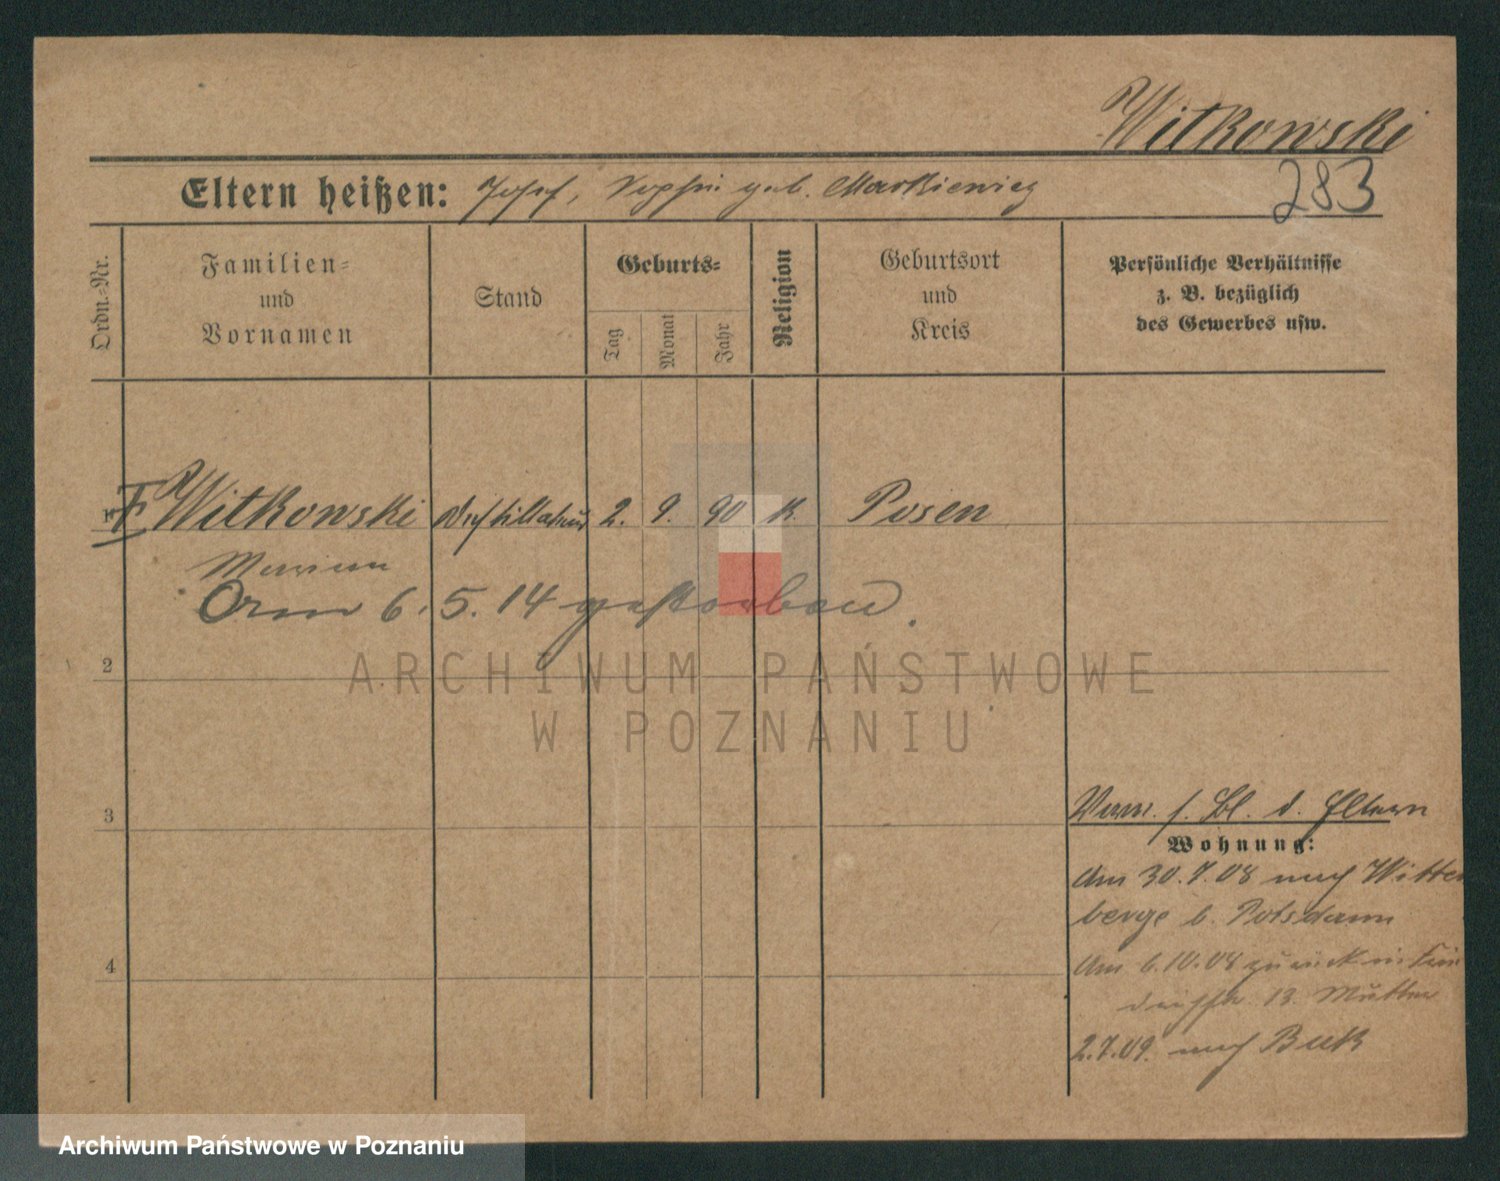 Witkowski
Eltern heißen: Josef, Sophie geb. Markiewicz
283
Ordn.-Nr.
Familien-
und
Vornamen
Stand
Geburts-
Tag
Monat
Jahr
Religion
Geburtsort
und
Kreis
Persönliche Verhältnisse
z. B. bezüglich
des Gewerbes usw.
F Witkowski Destillateur 2. 9. 90 K. Posen
Marian
Am 6. 5. 14 gestorben.
ARCHIWUM PAŃSTWOWE
W POZNANIU
2
3
4
Verm. s. Bl. d. Eltern
Wohnung:
Am 30.7.08 nach Witten
berge b. Potsdam
Am 6.10.08 zurück
13. Mutter
2.7.09. nach Buk
Archiwum Państwowe w Poznaniu